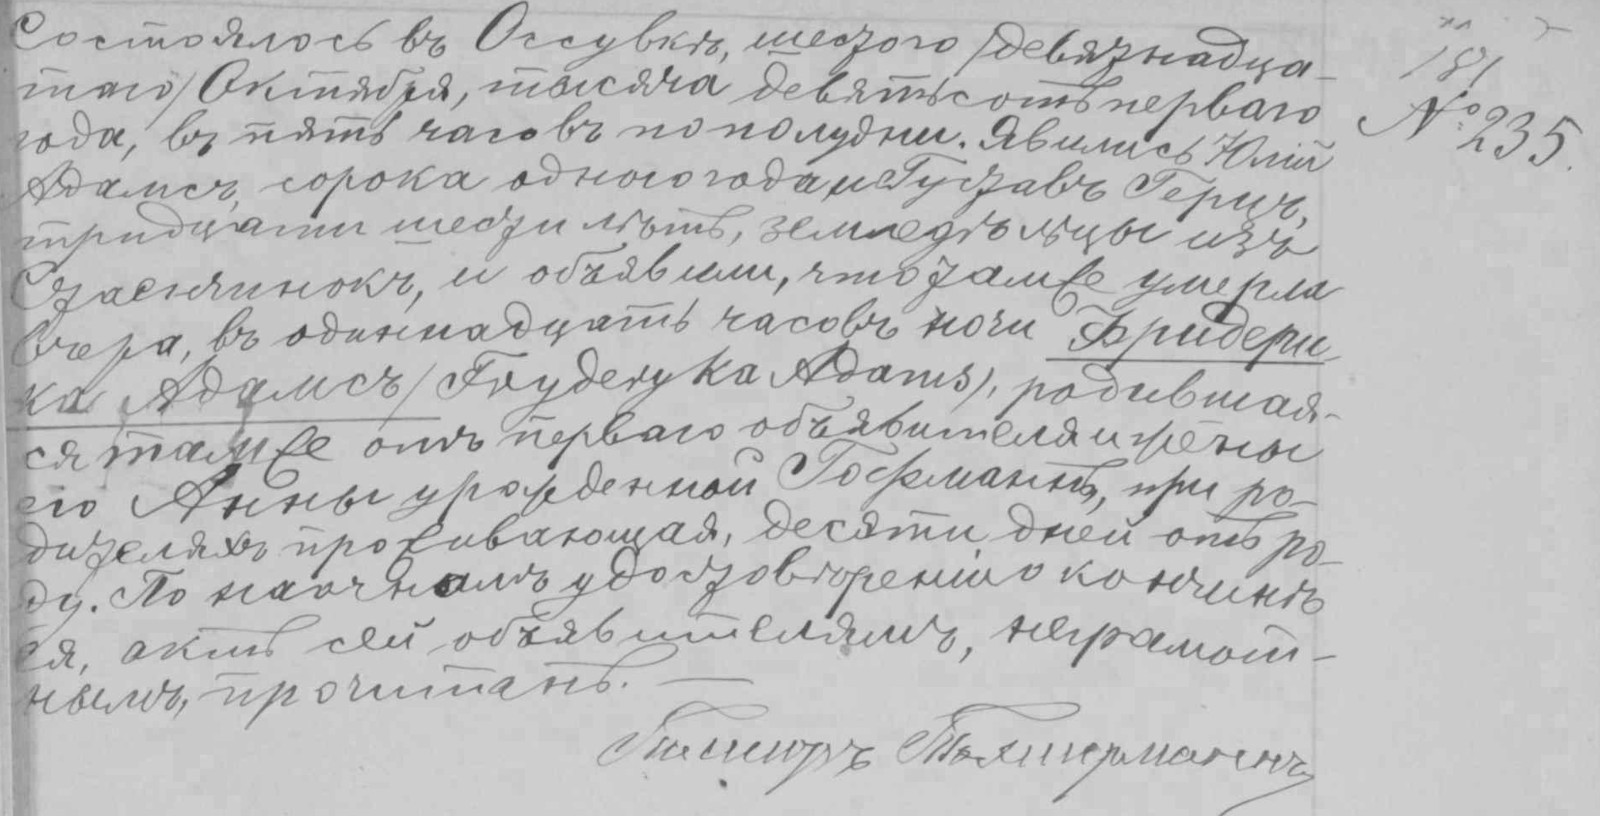 181
№ 235.
Состоялось въ Оссувкѣ, шестого /девятнадца-
таго/ Октября, тысяча девятьсотъ перваго
года, въ пять часовъ по полудни. Явились Юлій
Адамсъ, сорока одного года, и Густавъ Герцъ,
тридцати шести лѣтъ, земледѣльцы изъ
и объявили, что тамже умерла
вчера, въ одиннадцать часовъ ночи Фридери
ка Адамсъ /Fryderyka Adams/, родившая-
ся тамже отъ перваго объявителя и жены
его Анны урожденной Гофманнъ, при ро-
дителяхъ проживающая, десяти дней отъ ро-
ду. По наочномъ удостовѣреніи о кончинѣ
ея, актъ сей объявителямъ, неграмот-
нымъ, прочитанъ. —